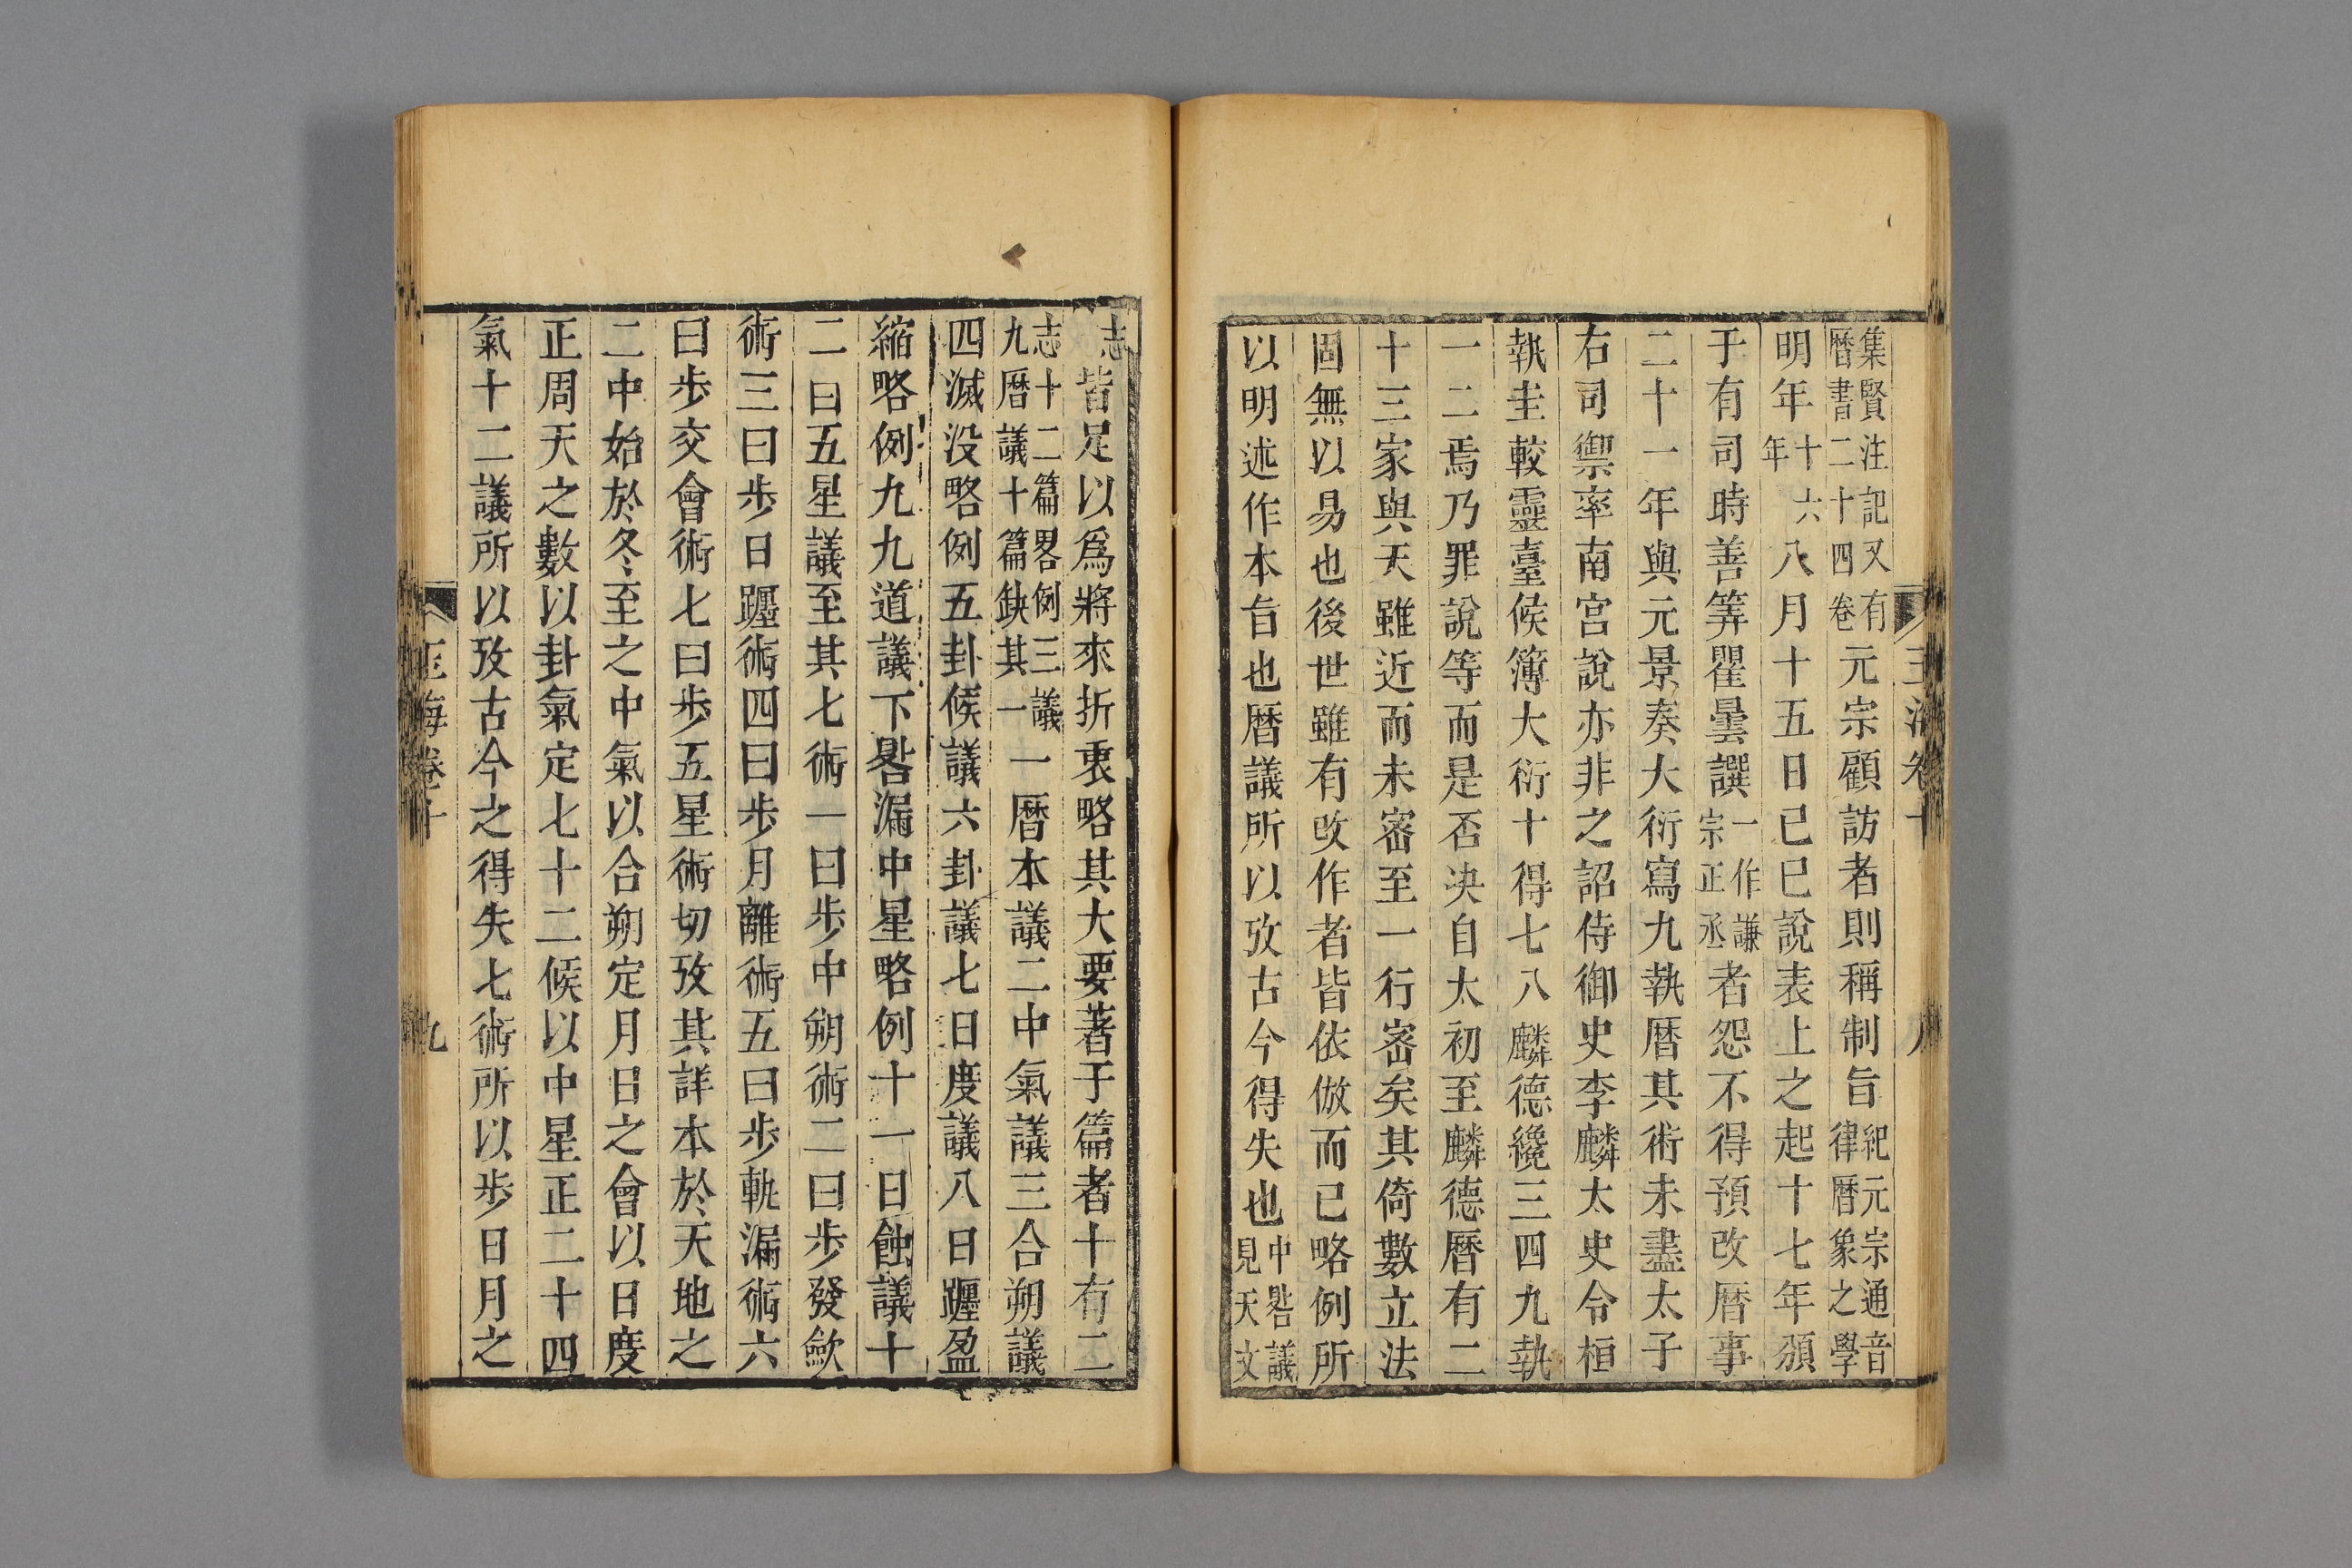 集賢注記又有曆書二十四卷元宗顧訪者則稱制旨紀元宗通音律曆象之學
明年十六年八月十五日己巳說表上之起十七年頒
于有司時善筭瞿曇譔一作謙宗正丞者怨不得預改曆事
二十一年與元景奏大衍寫九執曆其術未盡太子
右司禦率南宮說亦非之詔侍御史李麟太史令桓
執圭較靈臺候簿大衍十得七八麟德纔三四九執
一二焉乃罪說等而是否決自太初至麟德曆有二
十三家與天雖近而未密至一行密矣其倚數立法
固無以易也後世雖有改作者皆依倣而已略例所
以明述作本旨也曆議所以攷古今得失也中晷議見天文
志皆足以爲將來折衷略其大要著于篇者十有二
志十二篇畧例三議九曆議十篇缺其一一曆本議二中氣議三合朔議
四滅没略例五卦候議六卦議七日度議八日躔盈
縮略例九九道議下晷漏中星略例十一日蝕議十
二曰五星議至其七術一曰步中朔術二曰步發斂
術三曰步日躔術四曰步月離術五曰步軌漏術六
曰步交會術七曰步五星術切攷其詳本於天地之
二中始於冬至之中氣以合朔定月日之會以日度
正周天之數以卦氣定七十二候以中星正二十四
氣十二議所以攷古今之得失七術所以步日月之
玉海卷十 九